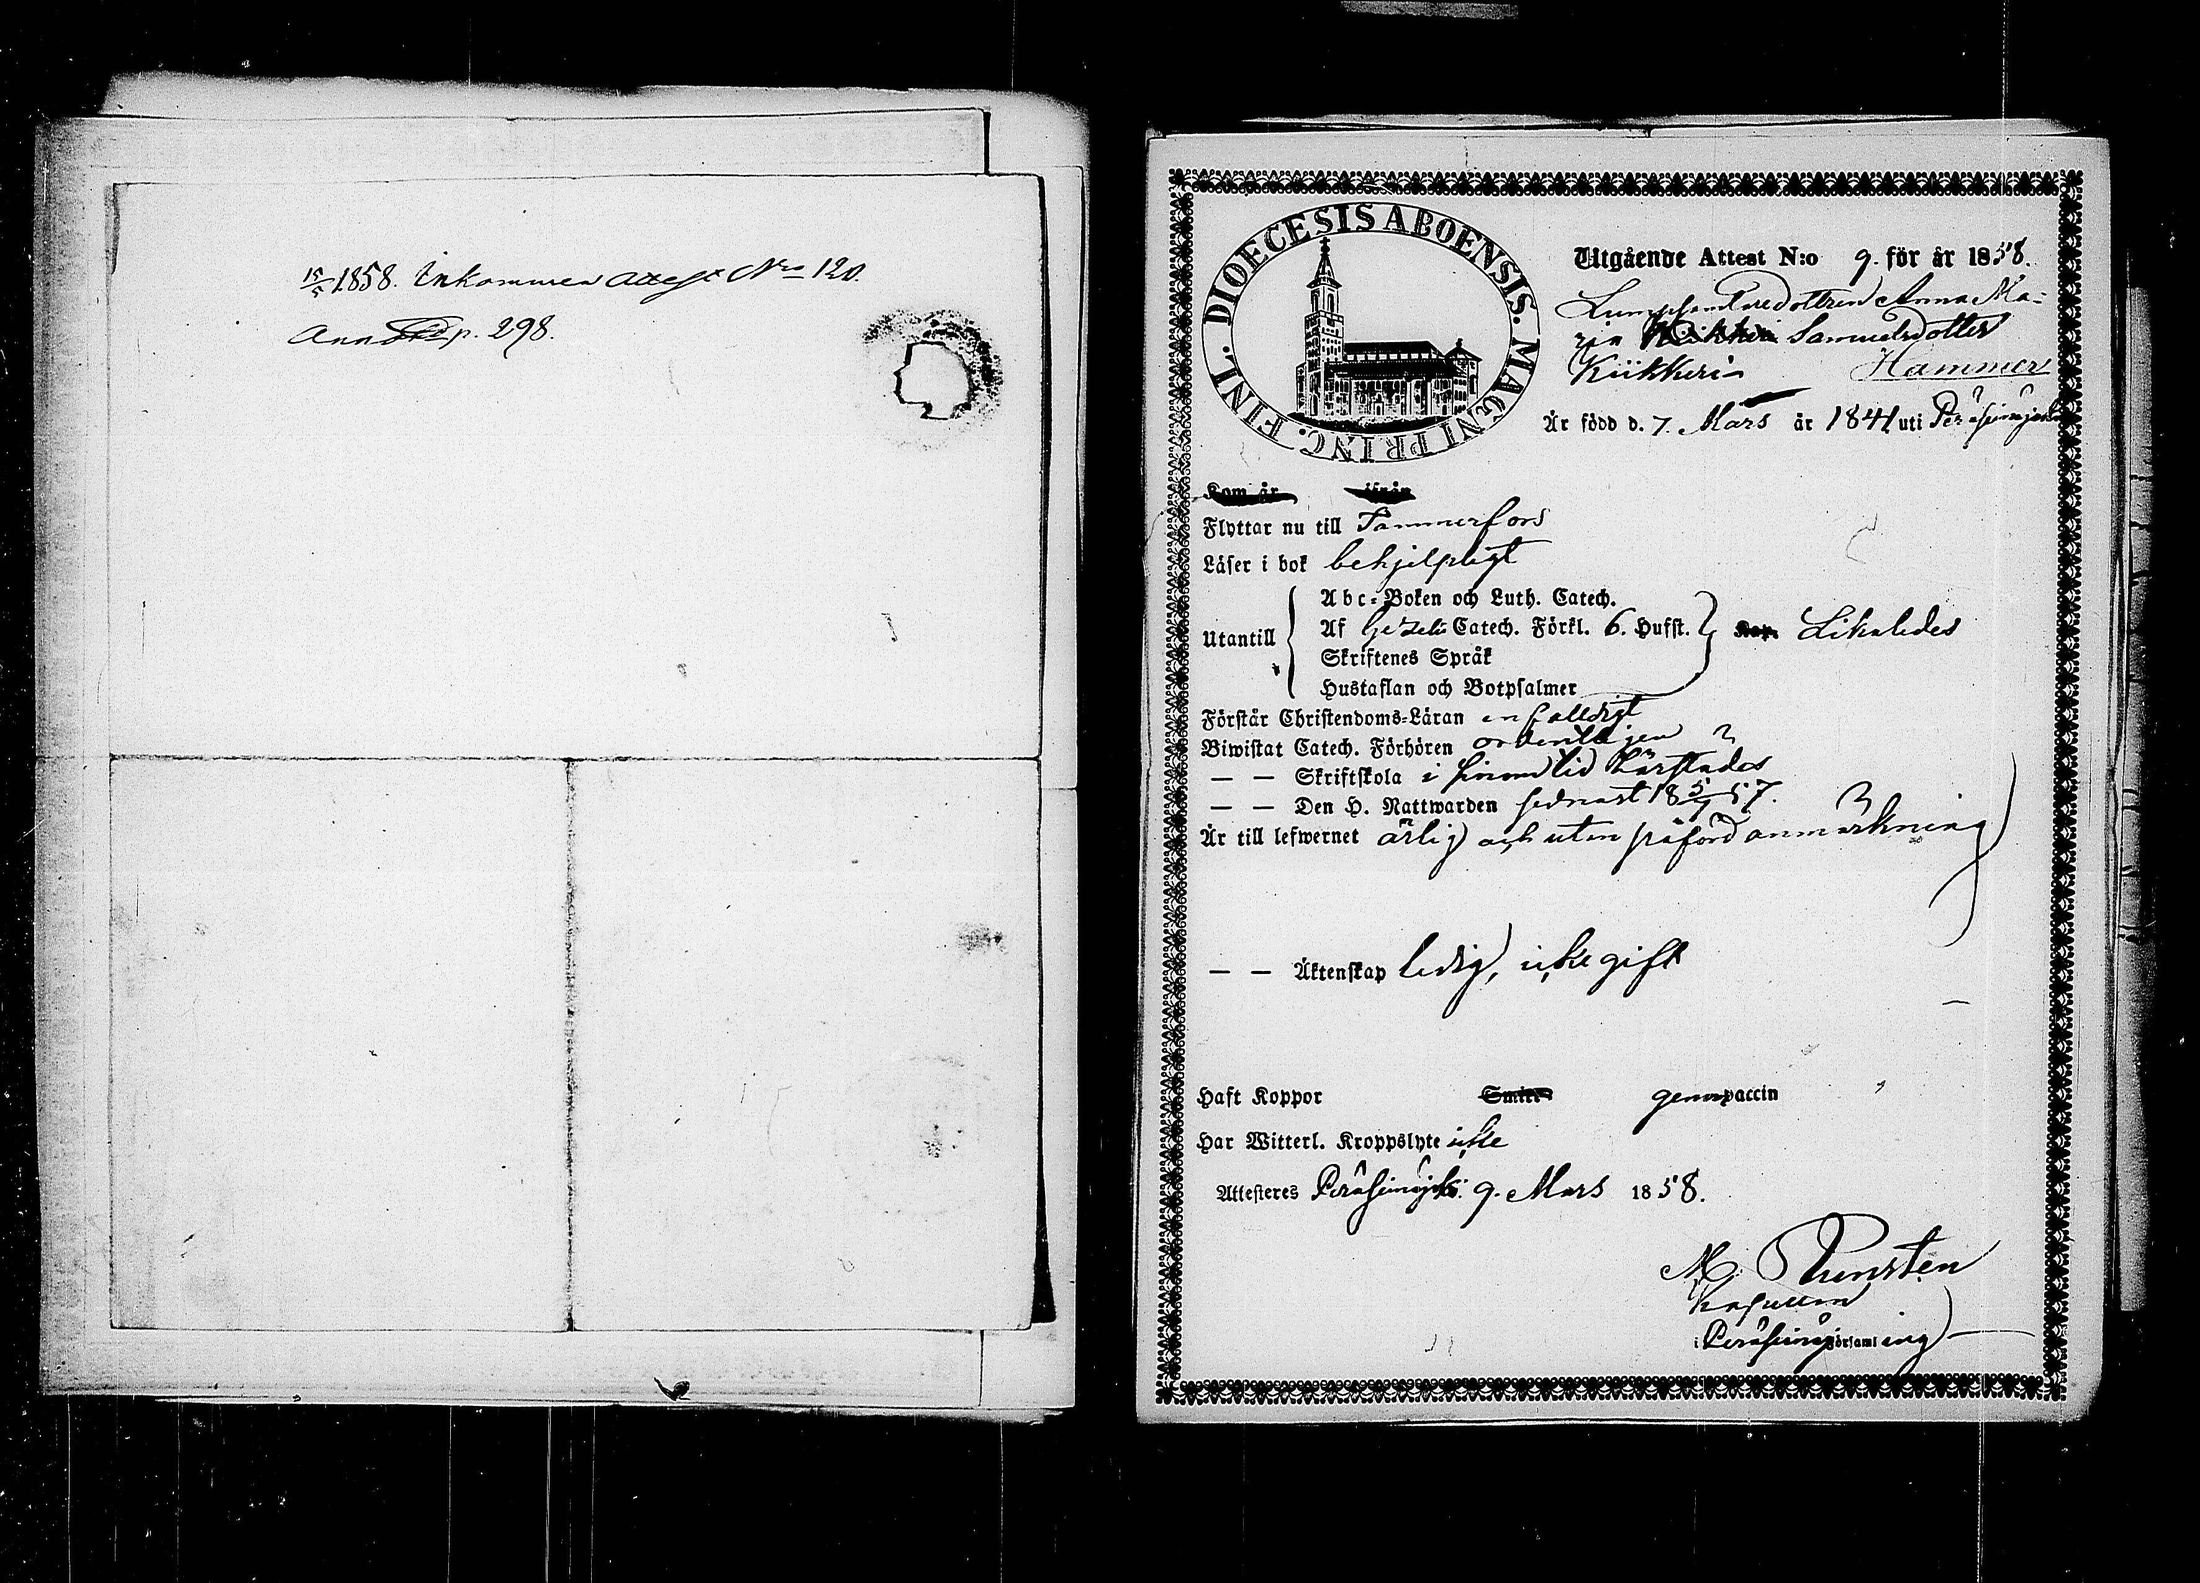 15/5 1858. Inkommen Attest Nro 120.
Ann p. 298.
DIOECESIS ABOENSIS. MAGNI PRINC. FINL.
Utgående Attest N:o 9. för år 1858.
Anna Ma-
ria Samuelsdotter
Kiikkeri Hammer
Är född d. 7. Mars år 1841 uti Peräseinäjoki
Kom år ifrån
Flyttar nu till Tammerfors
Läser i bok behjelpligt
Abc-Boken och Luth. Catech.
Utantill Af Gezelii Catech. Förkl. 6. Hufst. Kap. Likaledes
Skriftenes Språk
Hustaflan och Botpsalmer
Förstår Christendoms-Läran enfalldigt
Biwistat Catech. Förhören ordentligen
— — Skriftskola i sinom tid härstädes
— — Den H. Nattwarden sednast 18 5/7 57.
Är till lefwernet ärlig och utan påförd anmärkning
— — Äktenskap ledig, icke gift
Haft Koppor Smitt genom vaccin
Har Witterl. Kroppslyte icke
Attesteres Peräseinäjoki 9. Mars 1858.
M. Tunsten
Kapellan
i Peräseinäj församling